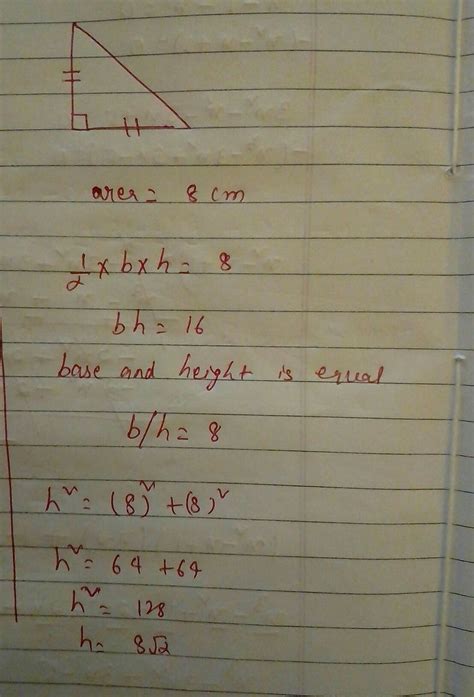 area = 8 cm
1/2 × b × h = 8
bh = 16
base and height is equal
b/h = 8
h² = (8)² + (8)²
h² = 64 + 64
h² = 128
h = 8√2